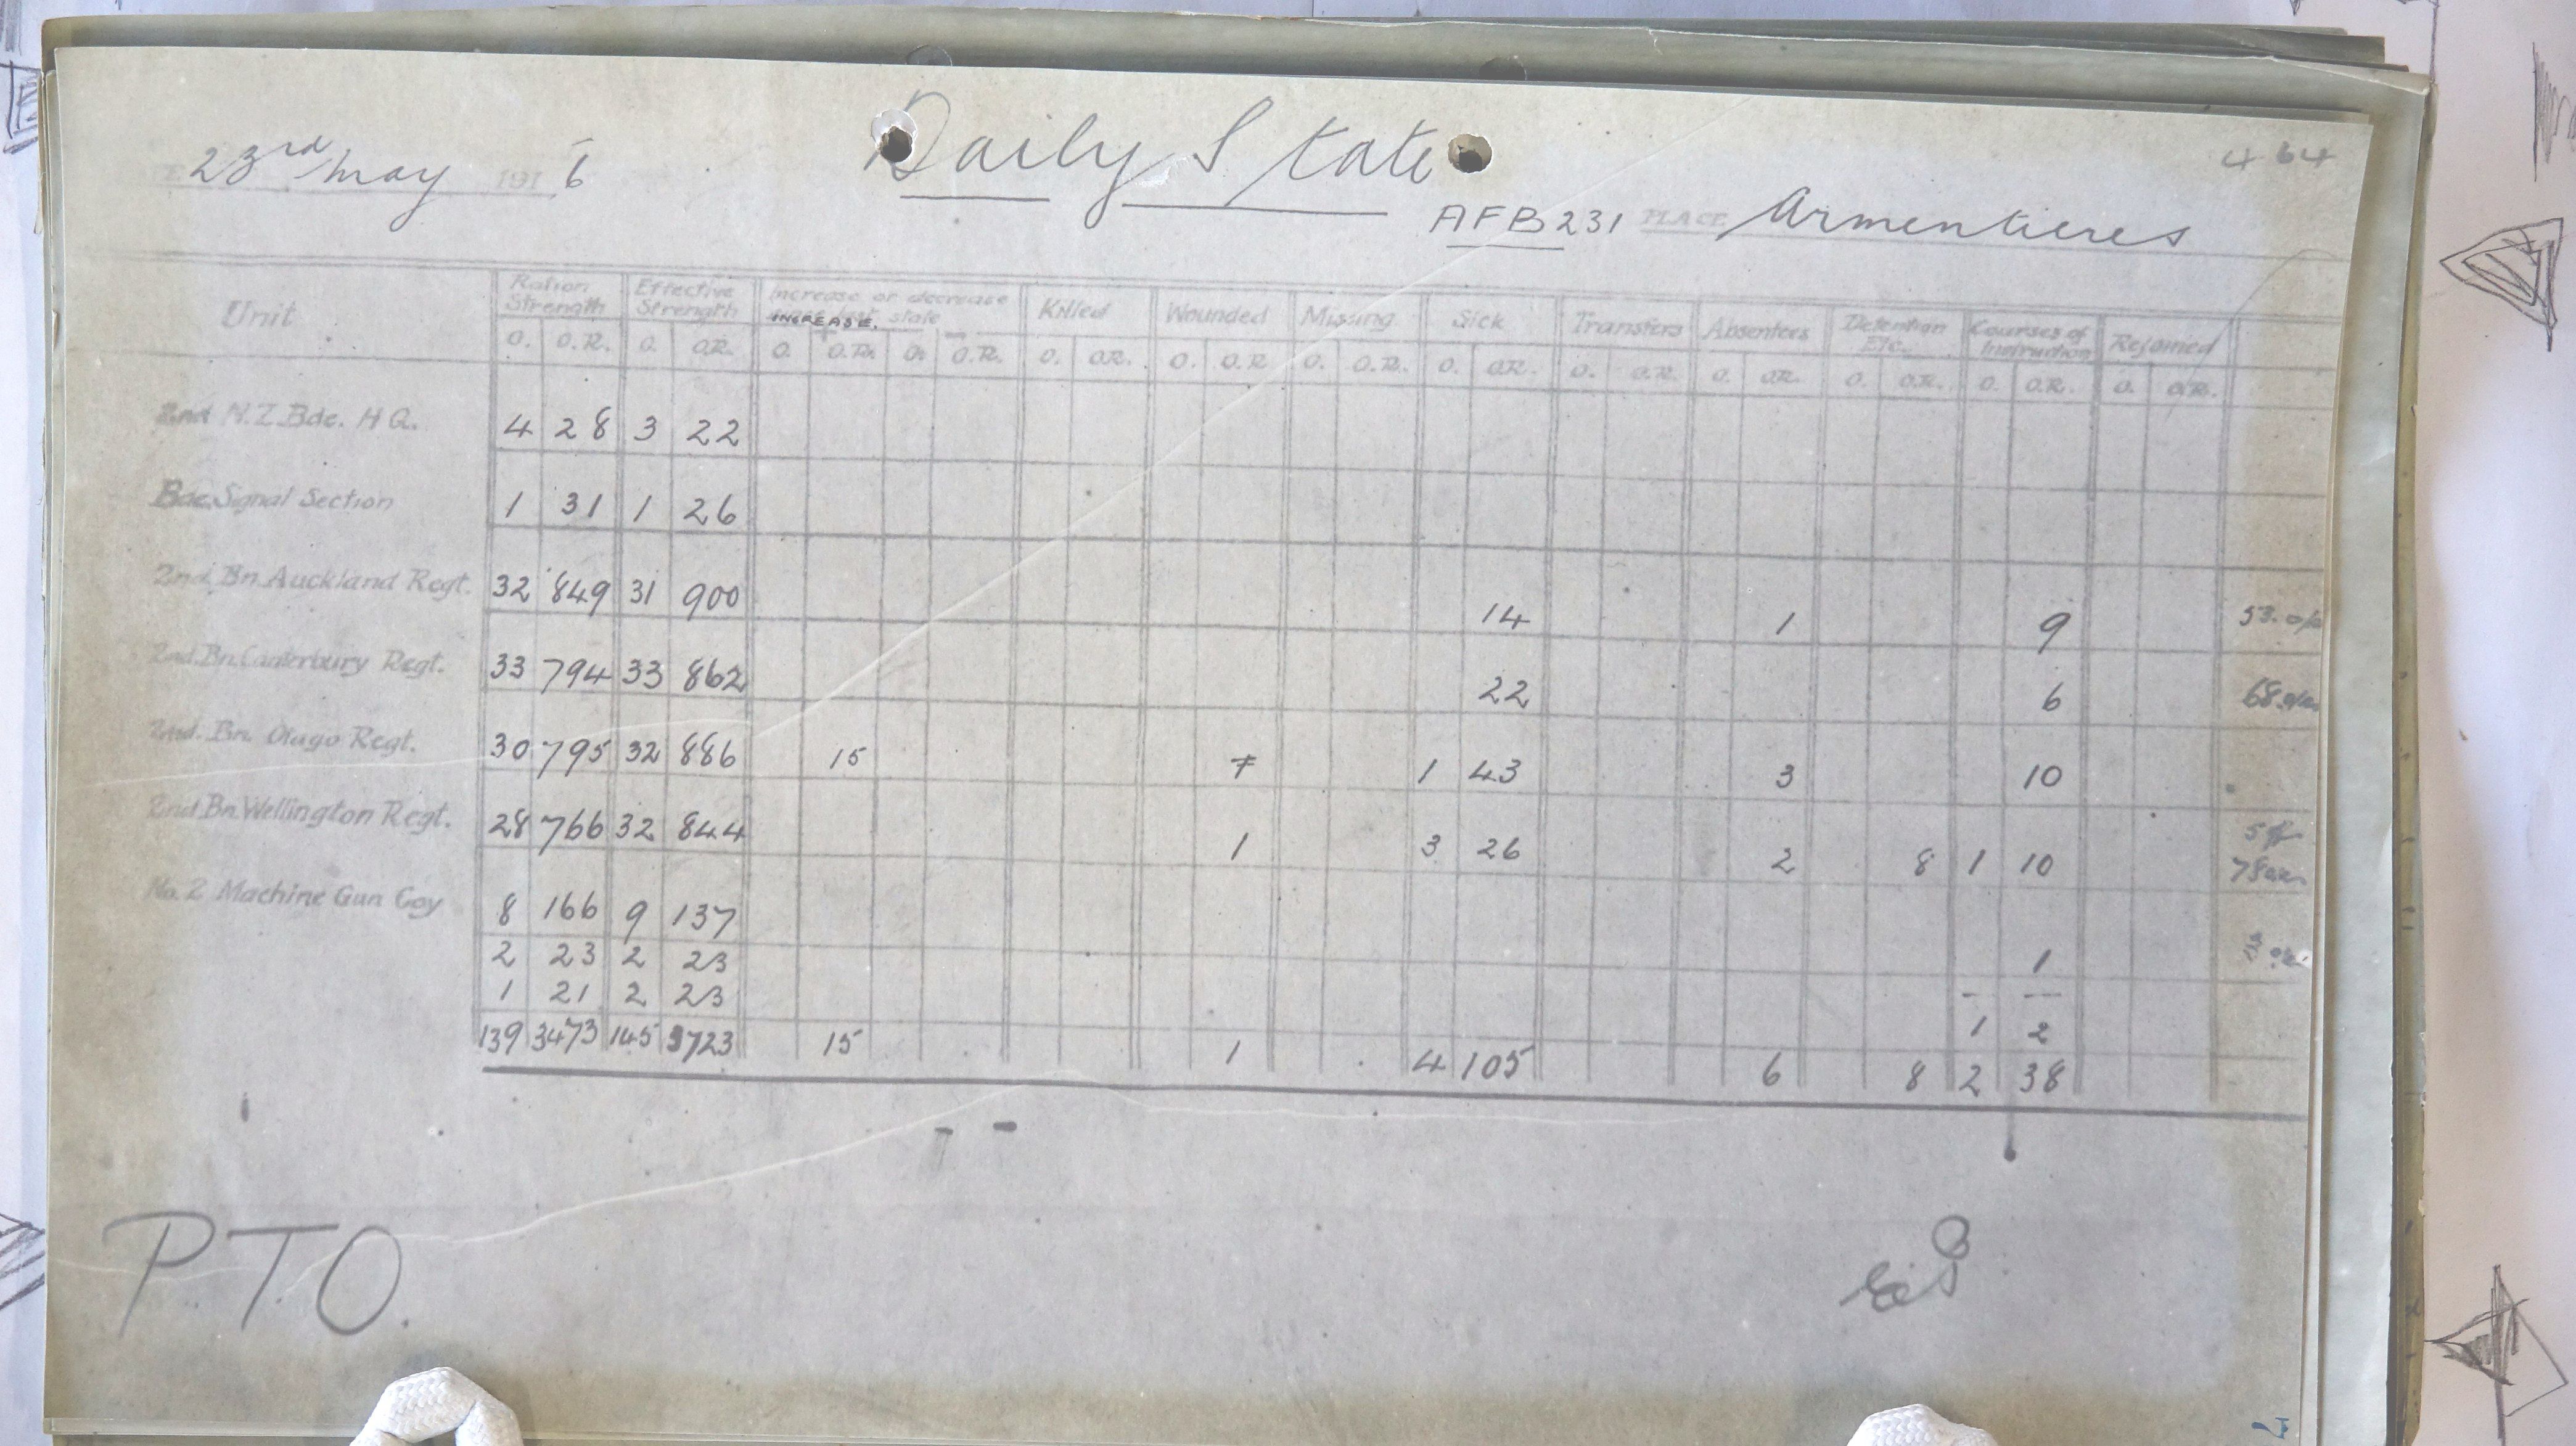 23rd May 1916
Daily State
464
AFB 231 PLACE Armentieres
Unit Ration Strength Effective Strength Increase or decrease state Killed Wounded Missing Sick Transfers Absentees Detention Etc. Courses of Instruction Rejoined
INCREASE. + -
O. O.R. O. O.R. O. O.R. O. O.R. O. O.R. O. O.R. O. O.R. O. O.R. O. O.R. O. O.R. O. O.R. O. O.R. O. O.R.
2nd N.Z. Bde. H Q. 4 28 3 22
Bde. Signal Section 1 31 1 26
2nd. Bn. Auckland Regt. 32 849 31 900 14 1 9 53.
2nd. Bn. Canterbury Regt. 33 794 33 862 22 6 68
2nd. Bn. Otago Regt. 30 795 32 886 15 1 43 3 10
2nd Bn. Wellington Regt. 28 766 32 844 1 3 26 2 8 1 10 5
78
No. 2 Machine Gun Coy 8 166 9 137 1 3
2 23 2 23 - —
1 21 2 23 1 2
139 3473 145 3723 15 1 4 105 6 8 2 38
P.T.O.